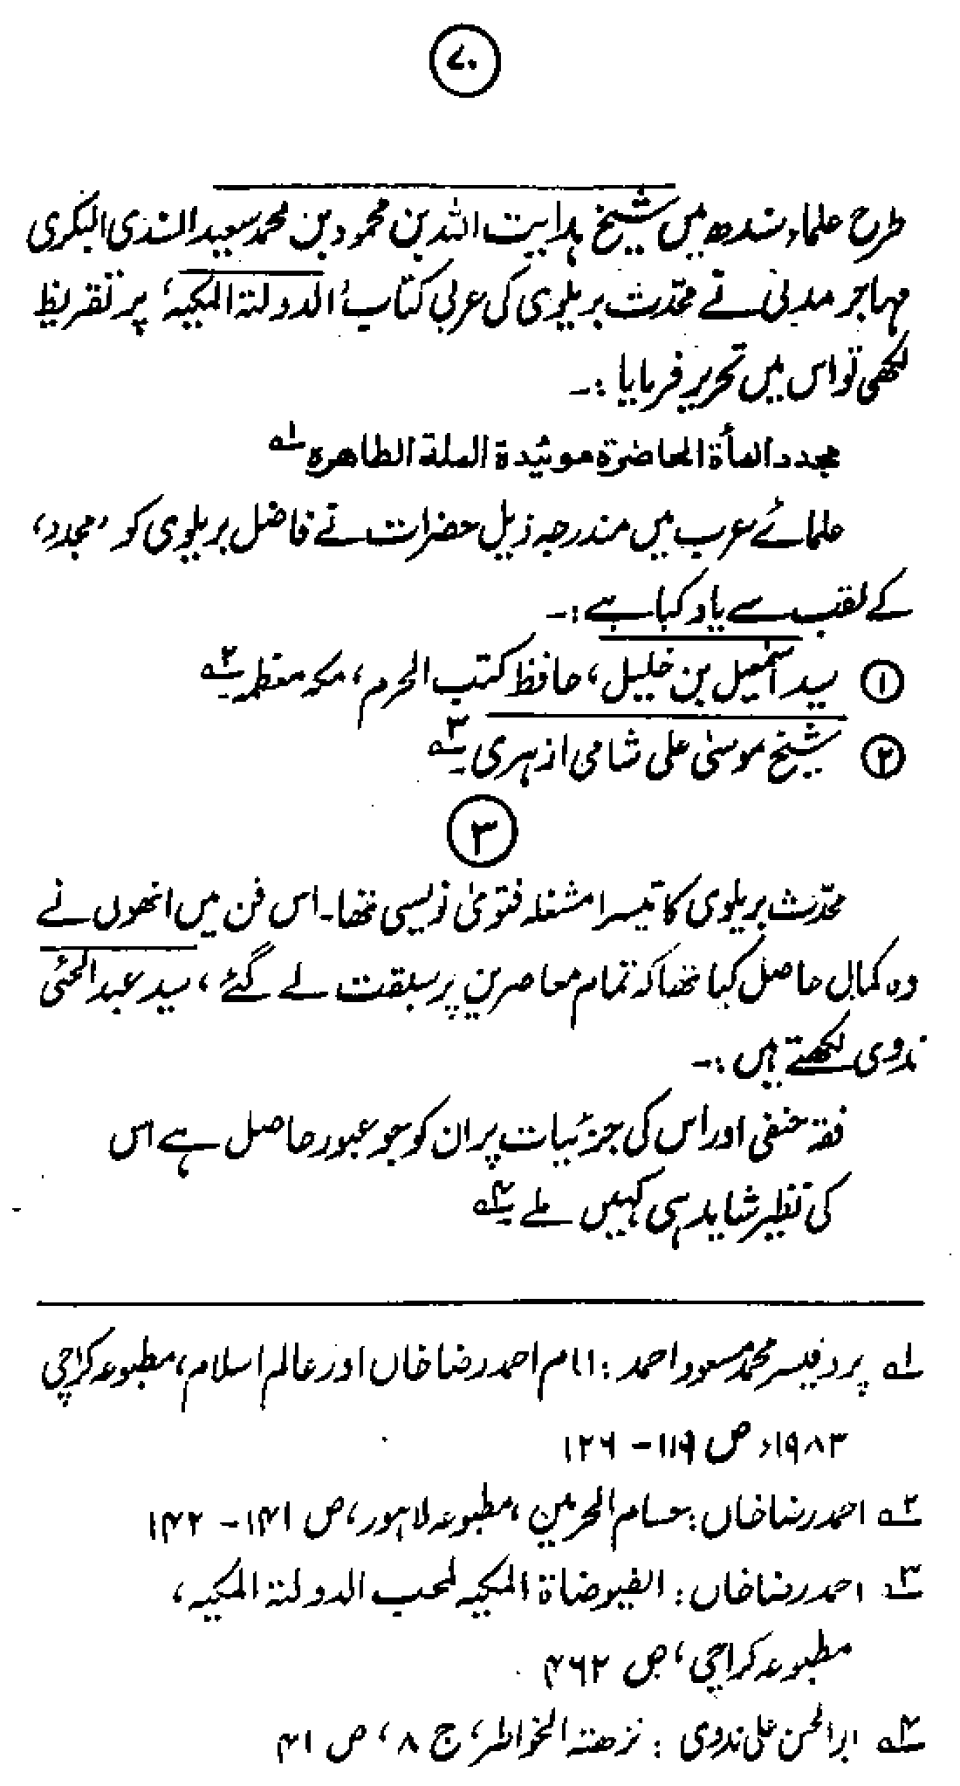 ۷۰
طرح علماء سندھ میں شیخ ہدایت اللہ بن محمود بن محمد سعید السندی البکری
مہاجر مدنی نے محدّث بریلوی کی عربی کتاب ’الدولۃ المکیہ‘ پر تقریظ
لکھی تو اس میں تحریر فرمایا :۔
مجدد المأة الحاضرة موئيدة الملة الطاهرة ؎۱
علمائے عرب میں مندرجہ ذیل حضرات نے فاضل بریلوی کو ’مجدد‘
کے لقب سے یاد کیا ہے :۔
۱ سید اسمٰعیل بن خلیل، حافظ کتب الحرم، مکہ معظمہ ؎۲
۲ شیخ موسیٰ علی شامی ازہری ؎۳
۳
محدّث بریلوی کا تیسرا مشغلہ فتویٰ نویسی تھا۔ اس فن میں انھوں نے
وہ کمال حاصل کیا تھا کہ تمام معاصرین پر سبقت لے گئے، سید عبد الحئی
ندوی لکھتے ہیں :۔
فقہ حنفی اور اس کی جزئیات پر ان کو جو عبور حاصل ہے اس
کی نظیر شاید ہی کہیں ملے ؎۴
؎۱ پروفیسر محمد مسعود احمد : امام احمد رضا خاں اور عالم اسلام، مطبوعہ کراچی
۱۹۸۳ء ص ۱۱۹ – ۱۲۶
؎۲ احمد رضا خاں : حسام الحرمین، مطبوعہ لاہور، ص ۱۴۱ – ۱۴۲
؎۳ احمد رضا خاں : الفیوضاۃ المکیہ لمحب الدولۃ المکیہ،
مطبوعہ کراچی، ص ۴۶۲
؎۴ ابوالحسن علی ندوی : نزھتہ الخواطر، ج ۸، ص ۴۱